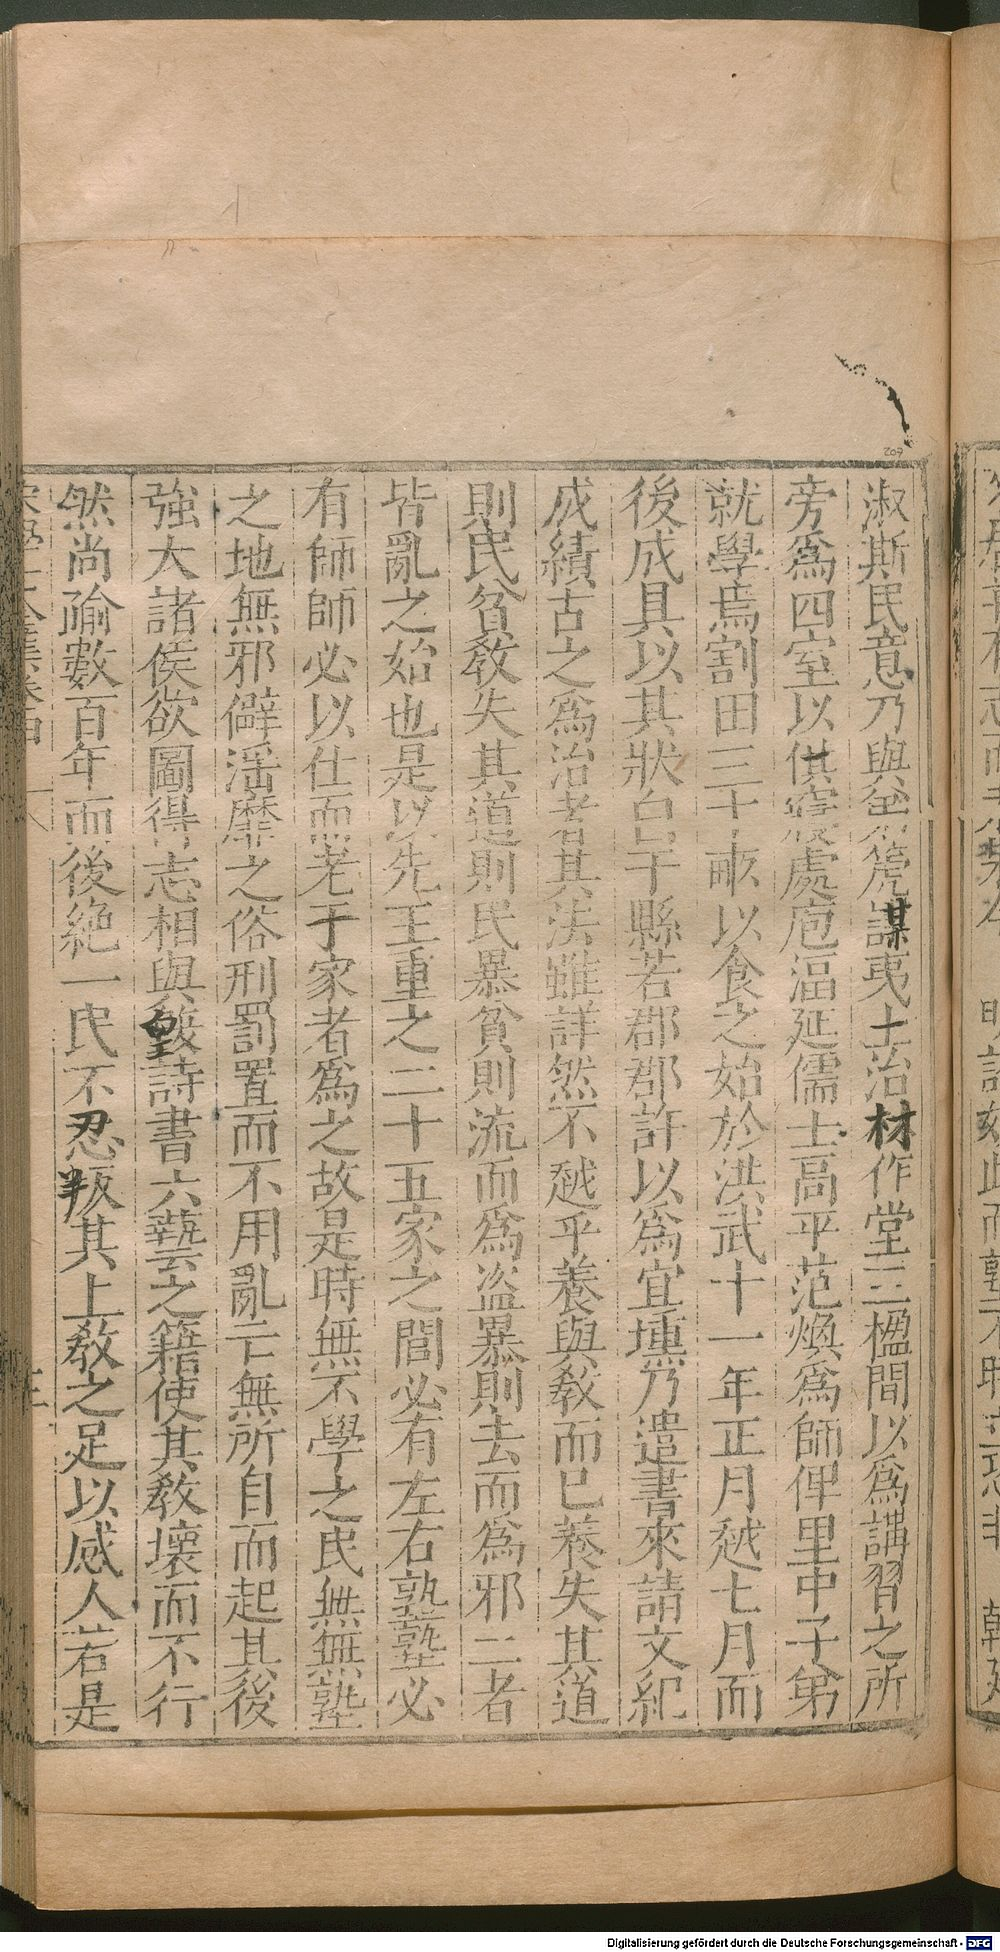 淑斯民意乃與
謀夷土治材作堂三楹間以爲講習之所
旁爲四室以供寢處庖湢延儒士高平范煥爲師俾里中子弟
就學焉割田三十畝以食之始於洪武十一年正月越七月而
後成具以其狀白于縣若郡郡許以爲宜壎乃遣書來請文紀
成績古之爲治者其法雖詳然不越乎養與敎而已養失其道
則民貧敎失其道則民暴貧則流而爲盜暴則去而爲邪二者
皆亂之始也是以先王重之二十五家之閭必有左右塾塾必
有師師必以仕而老于家者爲之故是時無不學之民無無塾
之地無邪僻滛靡之俗刑罰置而不用亂亡無所自而起其後
強大諸侯欲圖得志相與毀詩書六藝之籍使其敎壞而不行
然尚踰數百年而後絶一民不忍叛其上敎之足以感人若是
207
Digitalisierung gefördert durch die Deutsche Forschungsgemeinschaft - DFG